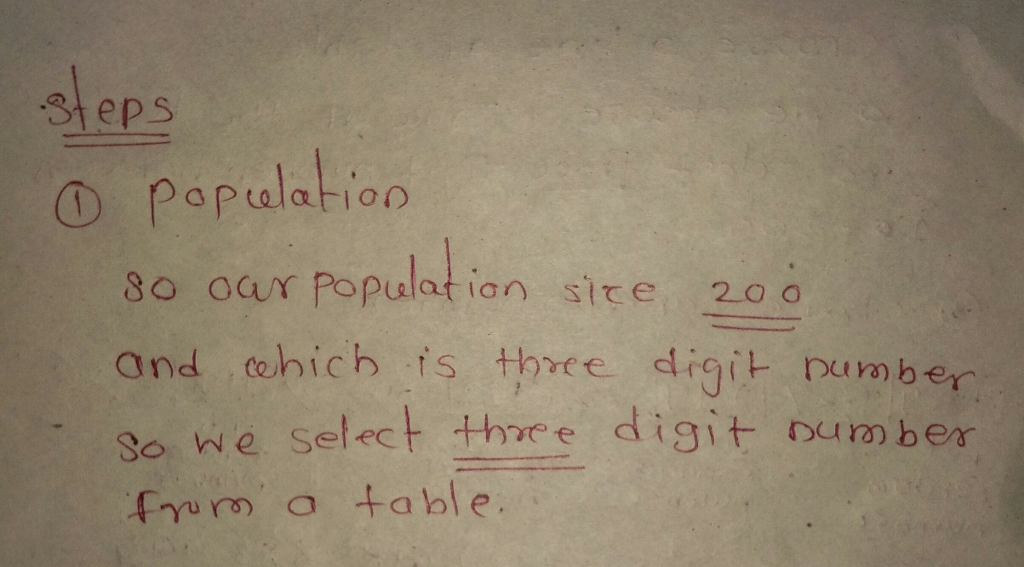 steps
① population
so our population size 200
and which is three digit number
so we select three digit number
from a table.